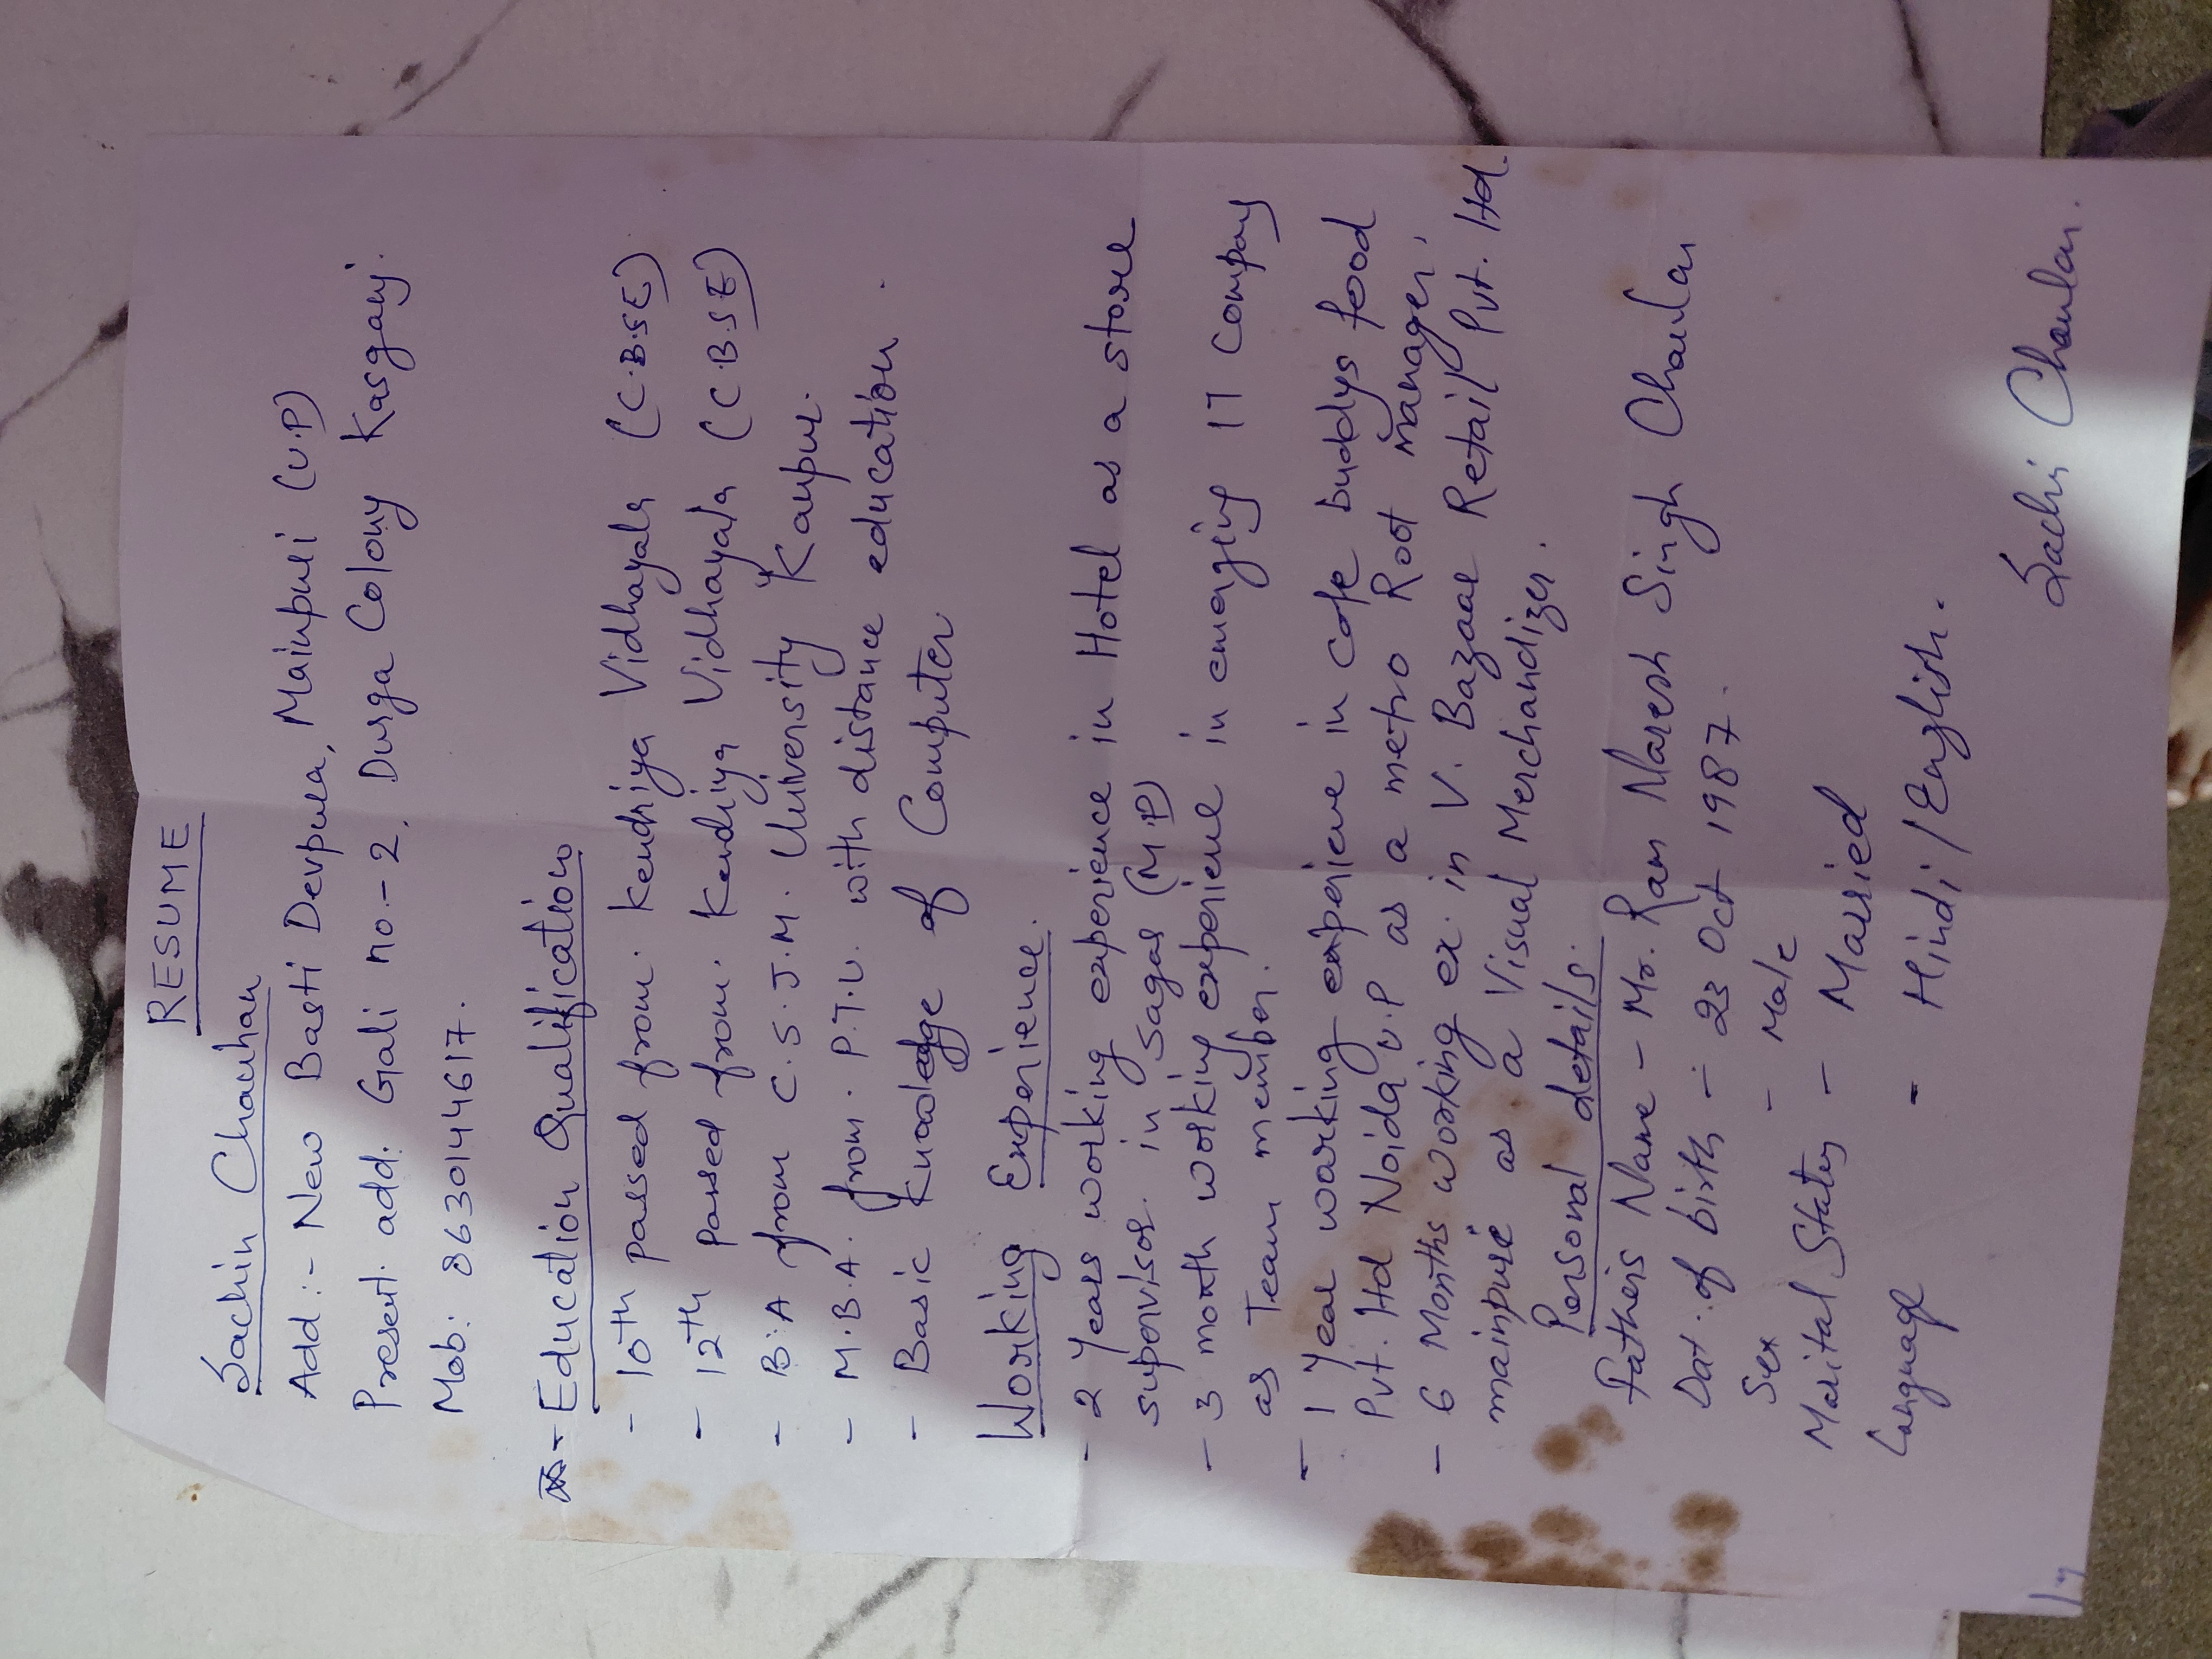 RESUME
Sachin Chauhan
Add:- New Basti Devpura, Mainpuri (U.P)
Present. add. Gali no-2, Durga Colony Kasganj.
Mob: 8630144617.
- Education Qualification
- 10th passed from. Kendriya Vidhayala (C.B.S.E)
- 12th passed from. Kendriya Vidhayala (C.B.S.E)
- B.A from C.S.J.M. University Kanpur.
- M.B.A. from. P.T.U. with distance education.
- Basic Knowledge of Computer
Working Experience.
- 2 Years working experience in Hotel as a store
supervisor in Sagar (M.P)
- 3 month working experience in emerging IT Company
as Team member.
- 1 Year working experience in cafe buddys food
Pvt. ltd Noida U.P as a metro Root manager.
- 6 Months working ex. in V. Bazaar Retail Pvt. ltd.
mainpuri as a Visual Merchandizer.
Personal details.
Fathers Name - Mr. Ram Naresh Singh Chauhan
Dat. of birth - 23 Oct 1987.
Sex - Male
Marital Status - Married
Language - Hindi/English.
Sachin Chauhan.